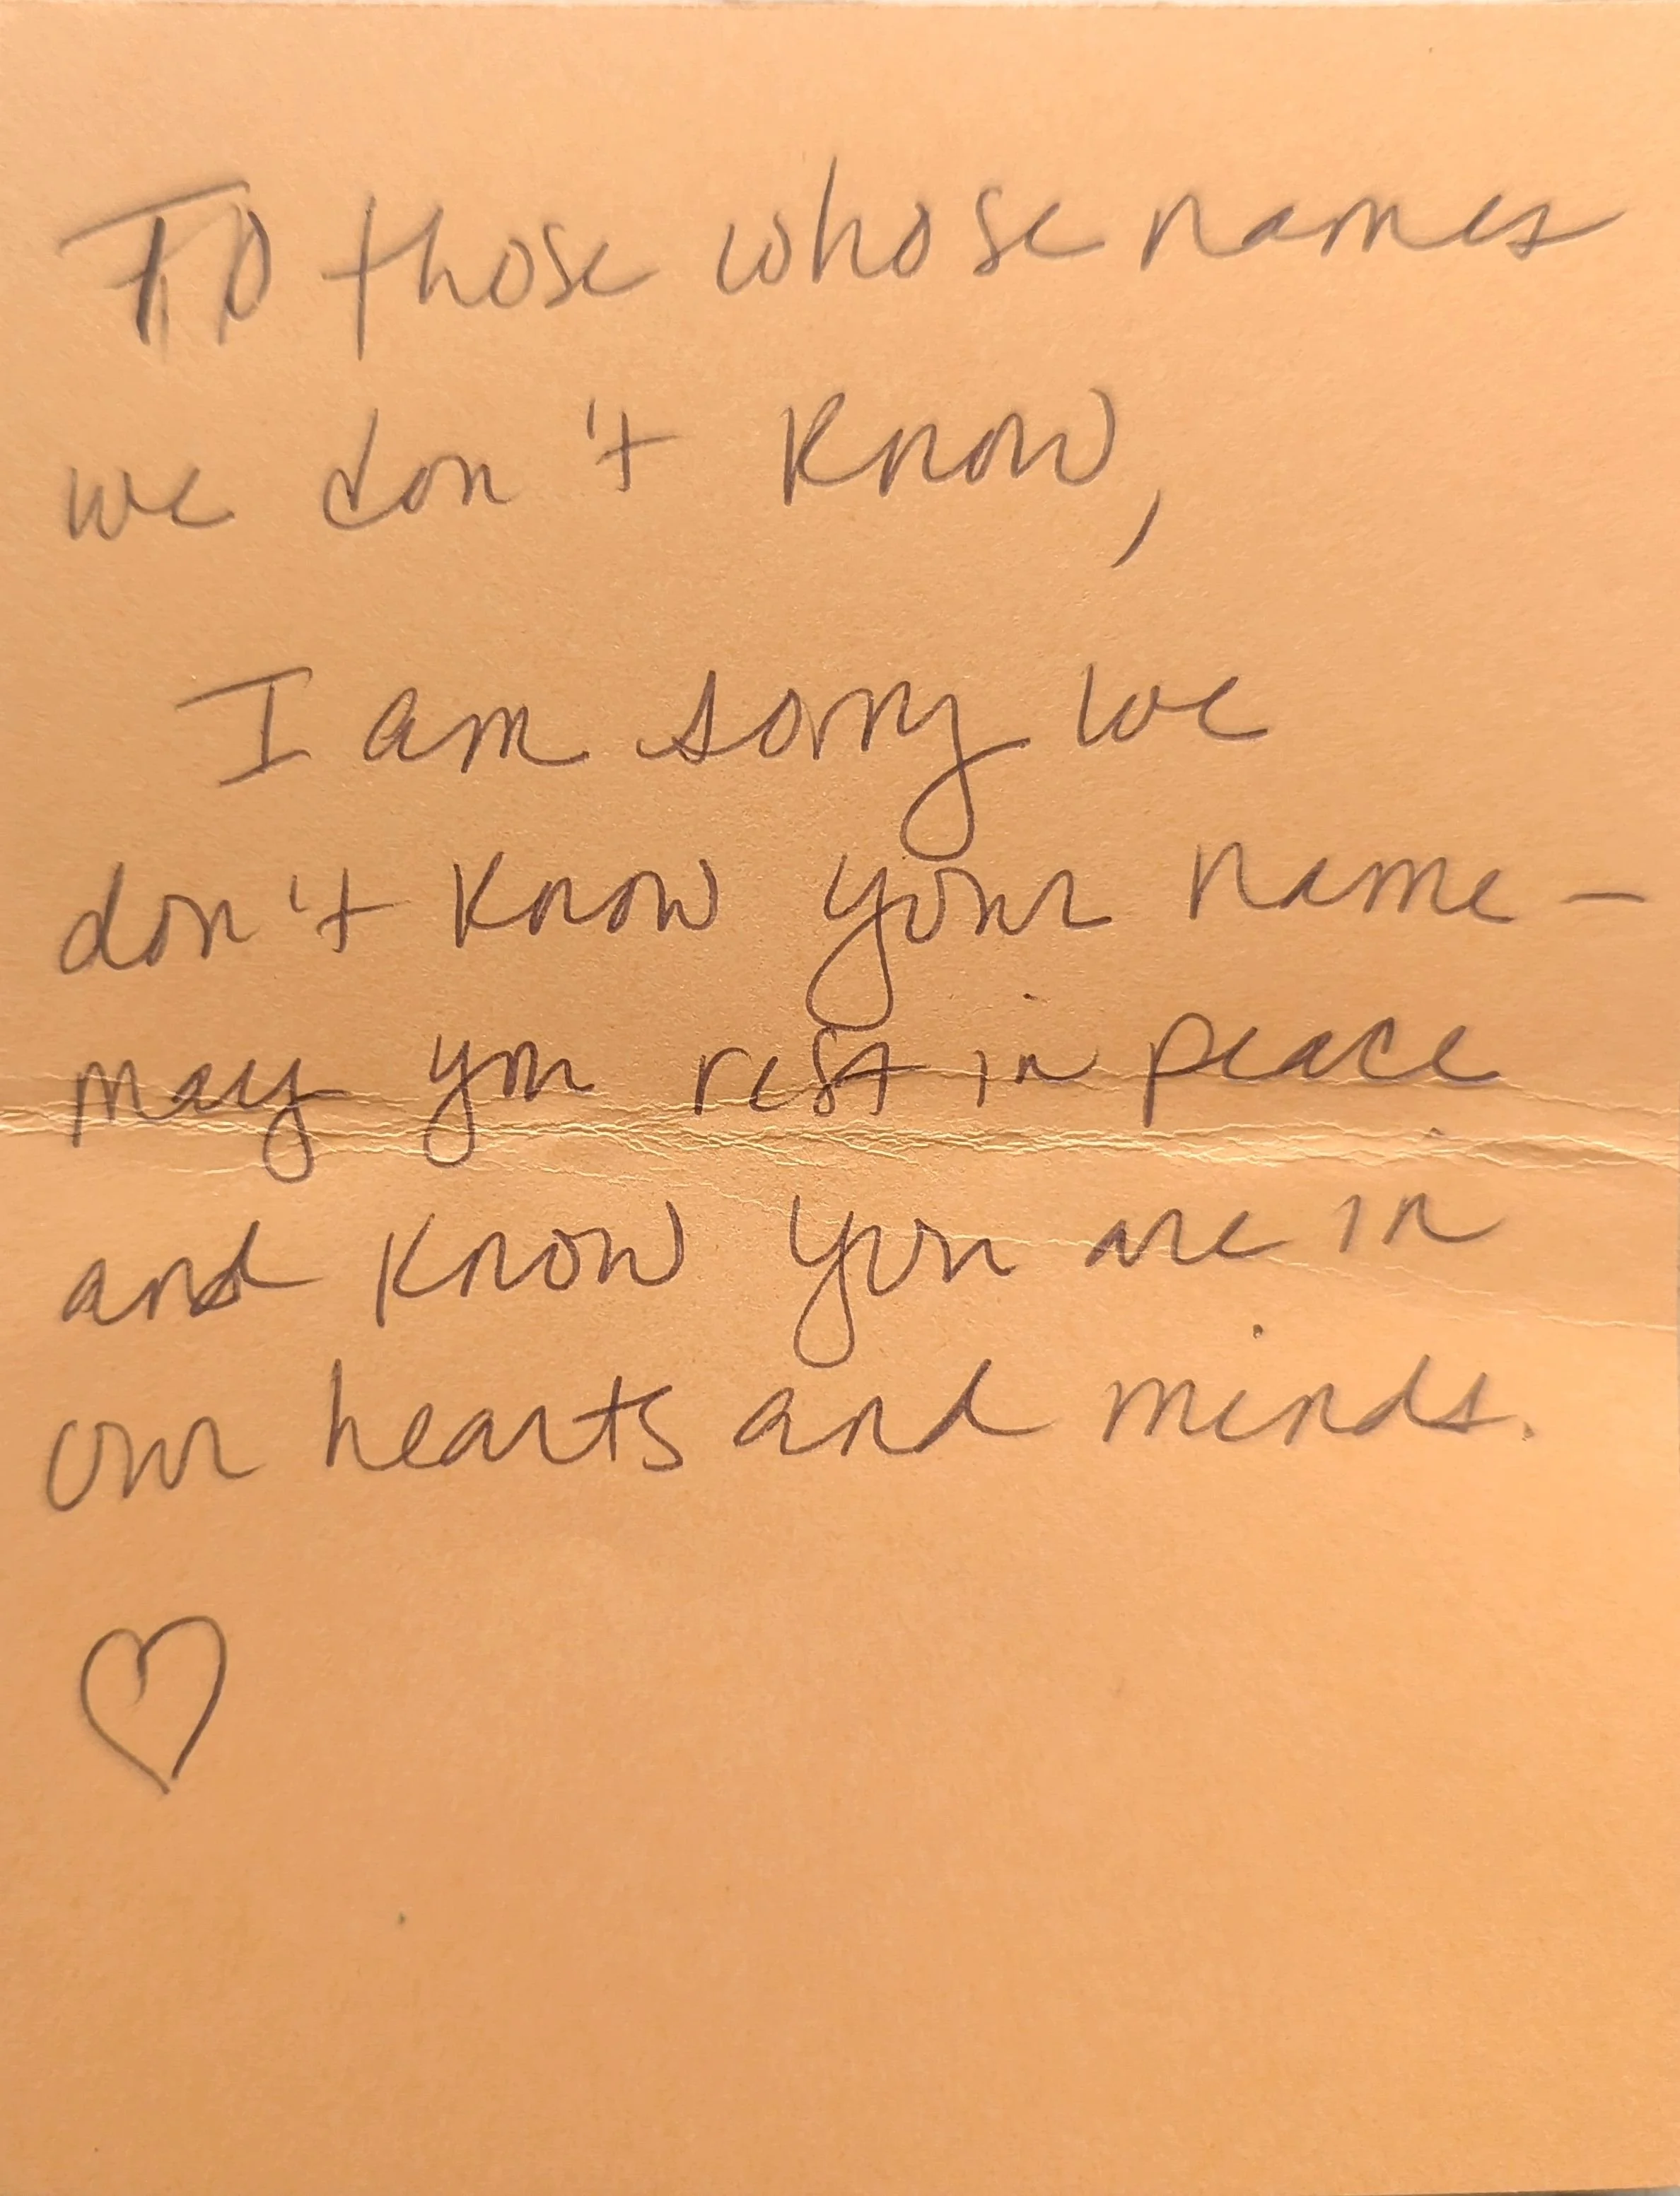 To those whose names
we don't know,
I am sorry we
don't know your name –
may you rest in peace
and know you are in
our hearts and minds.